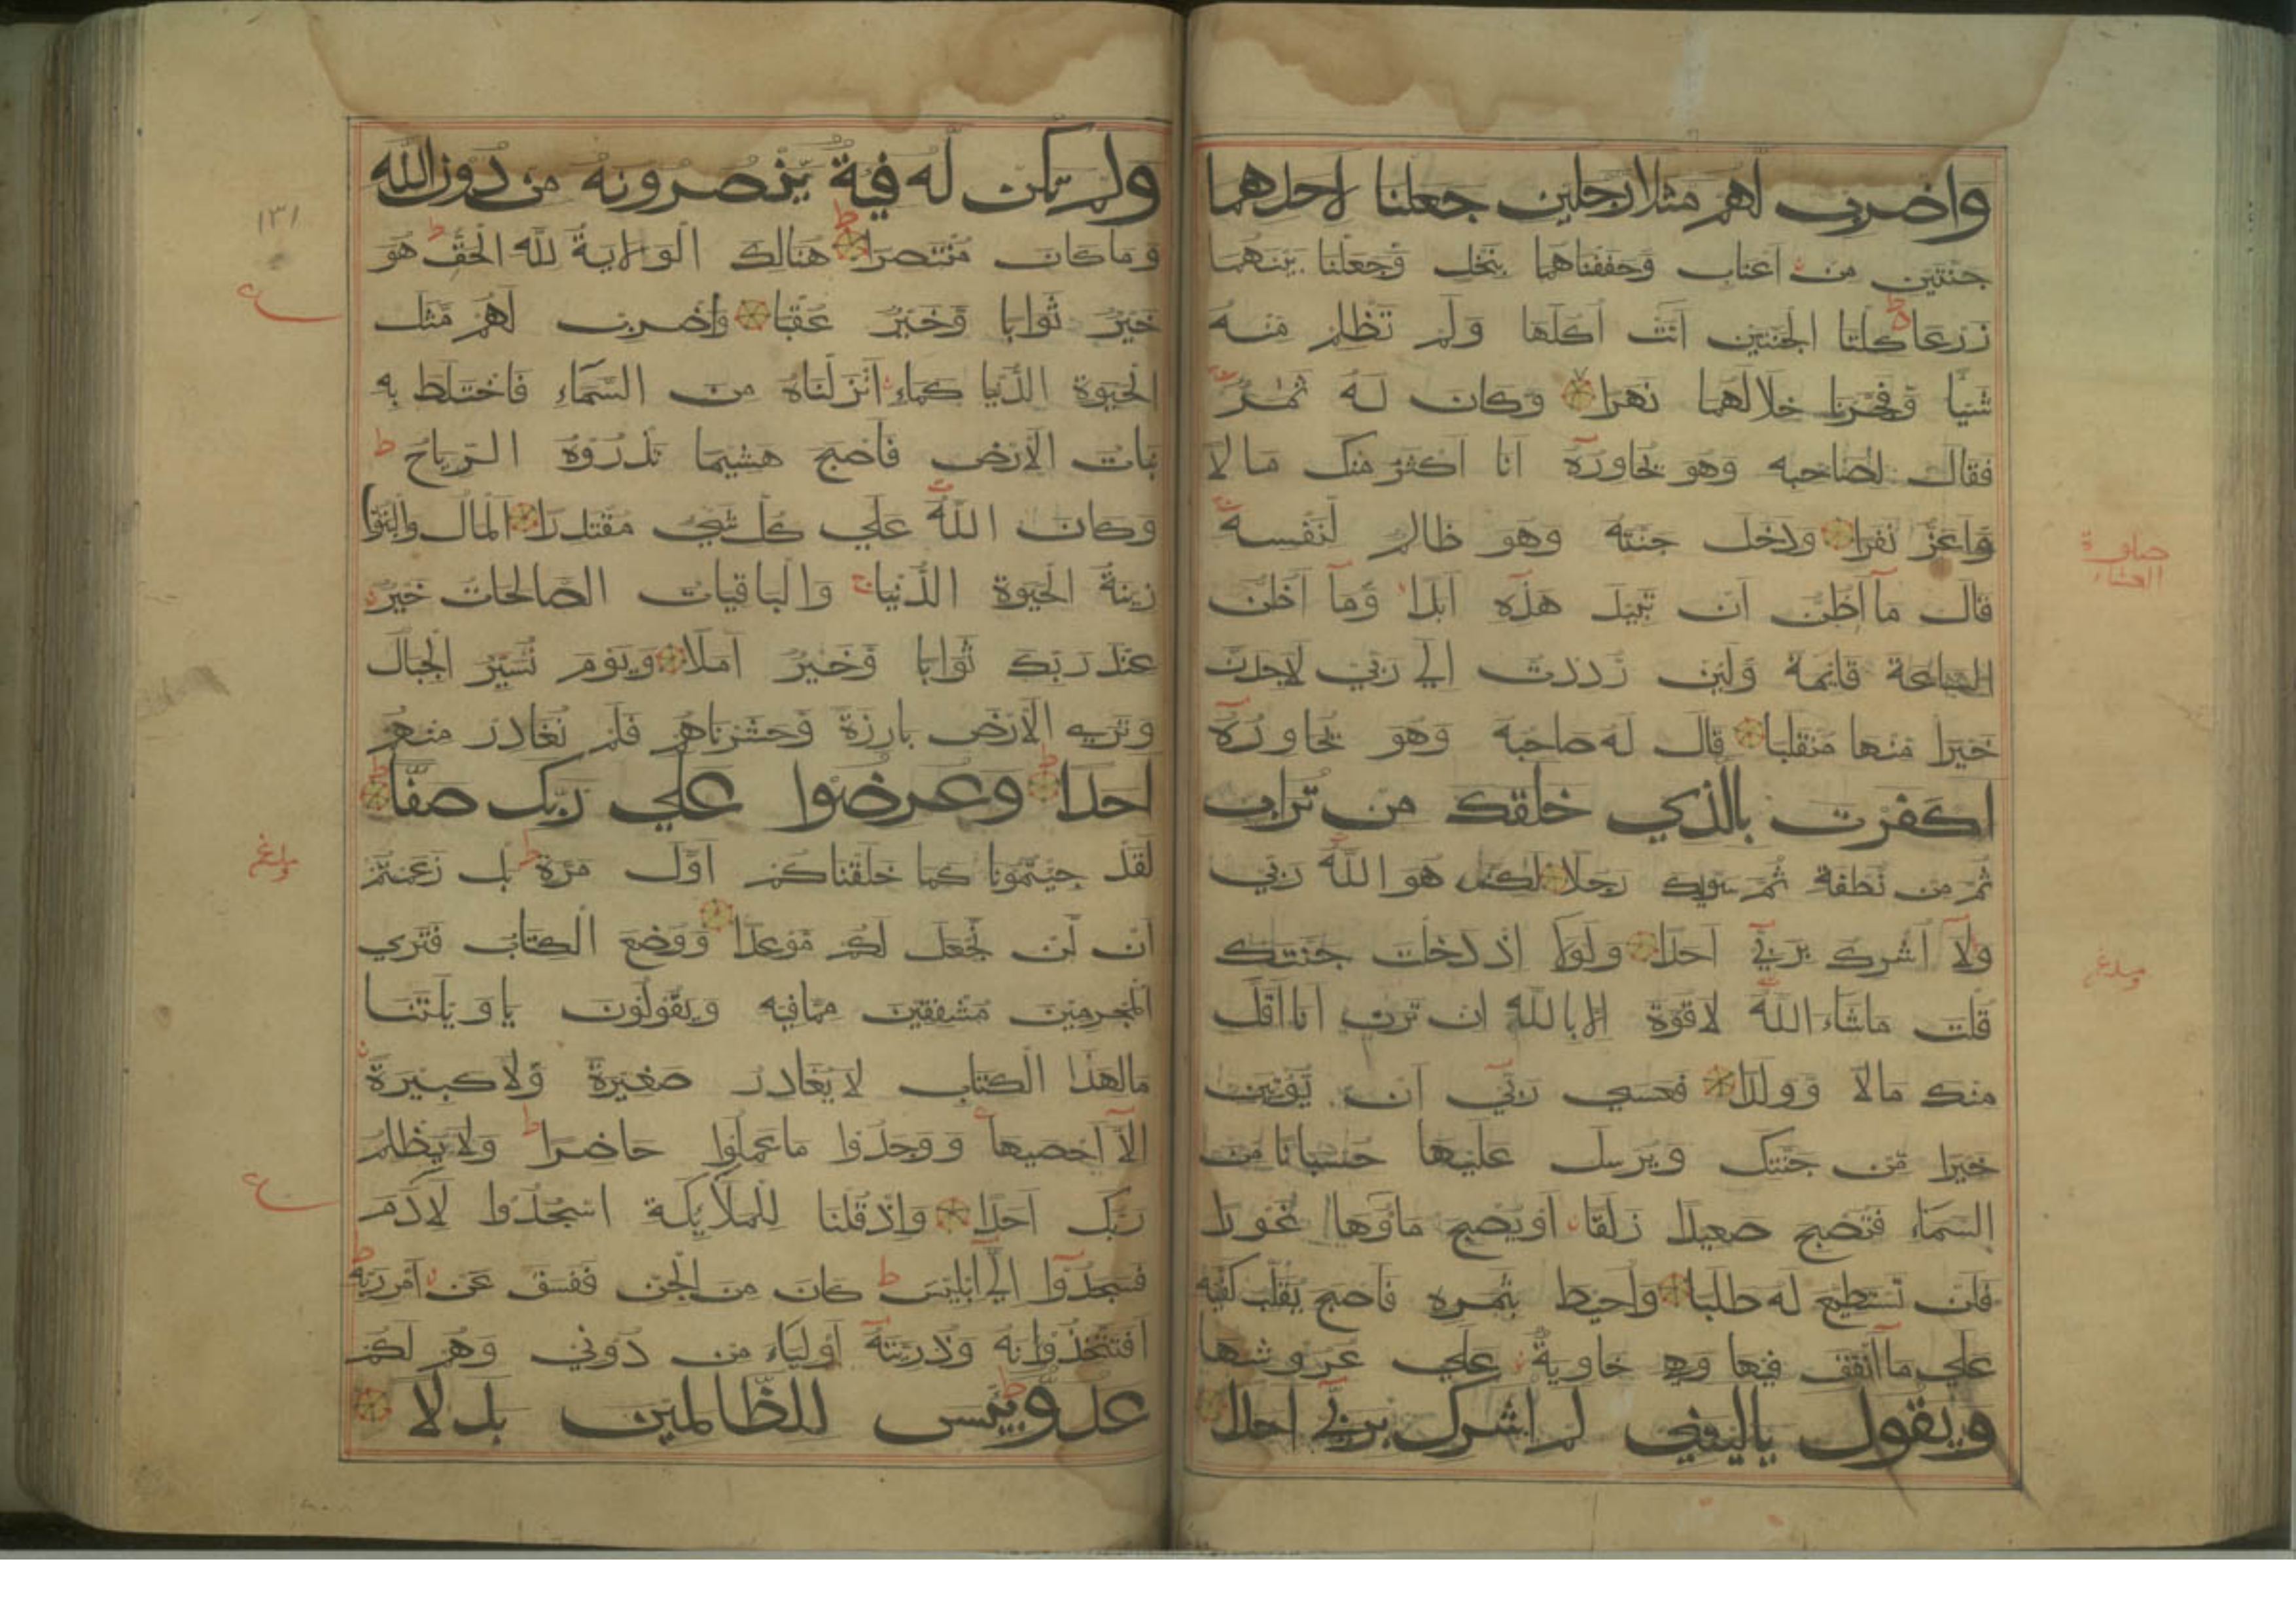 واضرب لهم مثلا رجلين جعلنا لاحدهما
جنتين من اعناب وحففناهما بنخل وجعلنا بينهما
زرعا كلتا الجنتين اتت اكلها ولم تظلم منه
شيئا وفجرنا خلالهما نهرا وكان له ثمر
فقال لصاحبه وهو يحاوره انا اكثر منك مالا
واعز نفرا ودخل جنته وهو ظالم لنفسه
قال ما اظن ان تبيد هذه ابدا وما اظن
الساعة قايمة ولين رددت الي ربي لاجدن
خيرا منها منقلبا قال له صاحبه وهو يحاوره
اكفرت بالذي خلقك من تراب
ثم من نطفة ثم سويك رجلا لكنا هو الله ربي
ولا اشرك بربي احدا ولولا اذ دخلت جنتك
قلت ماشاء الله لا قوة الا بالله ان ترن انا اقل
منك مالا وولدا فعسي ربي ان يؤتين
خيرا من جنتك ويرسل عليها حسبانا من
السماء فتصبح صعيدا زلقا او يصبح ماؤها غورا
فلن تستطيع له طلبا واحيط بثمره فاصبح يقلب كفيه
علي ما انفق فيها وهي خاوية علي عروشها
ويقول ياليتني لم اشرك بربي احدا
صلوة
العشاء
مبلغ
ولم تكن له فية ينصرونه من دون الله
وما كان منتصرا هنالك الولاية لله الحق هو
خير ثوابا وخير عقبا واضرب لهم مثل
الحيوة الدنيا كماء انزلناه من السماء فاختلط به
نبات الارض فاصبح هشيما تذروه الرياح
وكان الله علي كل شي مقتدرا المال والبنوا
زينة الحيوة الدنيا والباقيات الصالحات خير
عند ربك ثوابا وخير املا ويوم نسير الجبال
وتري الارض بارزة وحشرناهم فلم نغادر منهم
احدا وعرضوا علي ربك صفا
لقد جيتمونا كما خلقناكم اول مرة بل زعمتم
ان لن نجعل لكم موعدا ووضع الكتاب فتري
المجرمين مشفقين مما فيه ويقولون يا ويلتنا
مالهذا الكتاب لا يغادر صغيرة ولا كبيرة
الا احصيها ووجدوا ما عملوا حاضرا ولا يظلم
ربك احدا واذ قلنا للملايكة اسجدوا لادم
فسجدوا الي ابليس كان من الجن ففسق عن امر ربه
افتتخذونه وذريته اولياء من دوني وهم لكم
عدو بيس للظالمين بدلا
١٣١
مبلغ